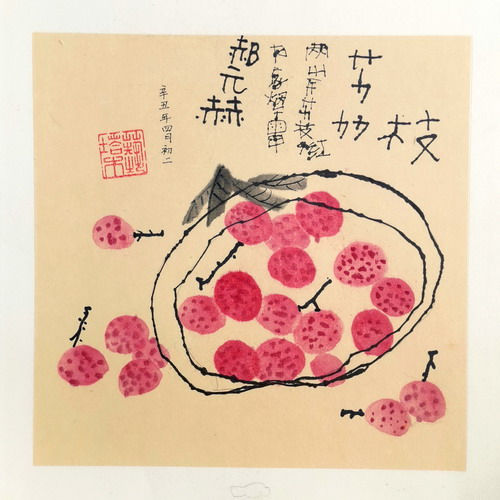 荔枝
两岸荔枝红
万家烟雨中
郝元赫
辛丑年四月初二